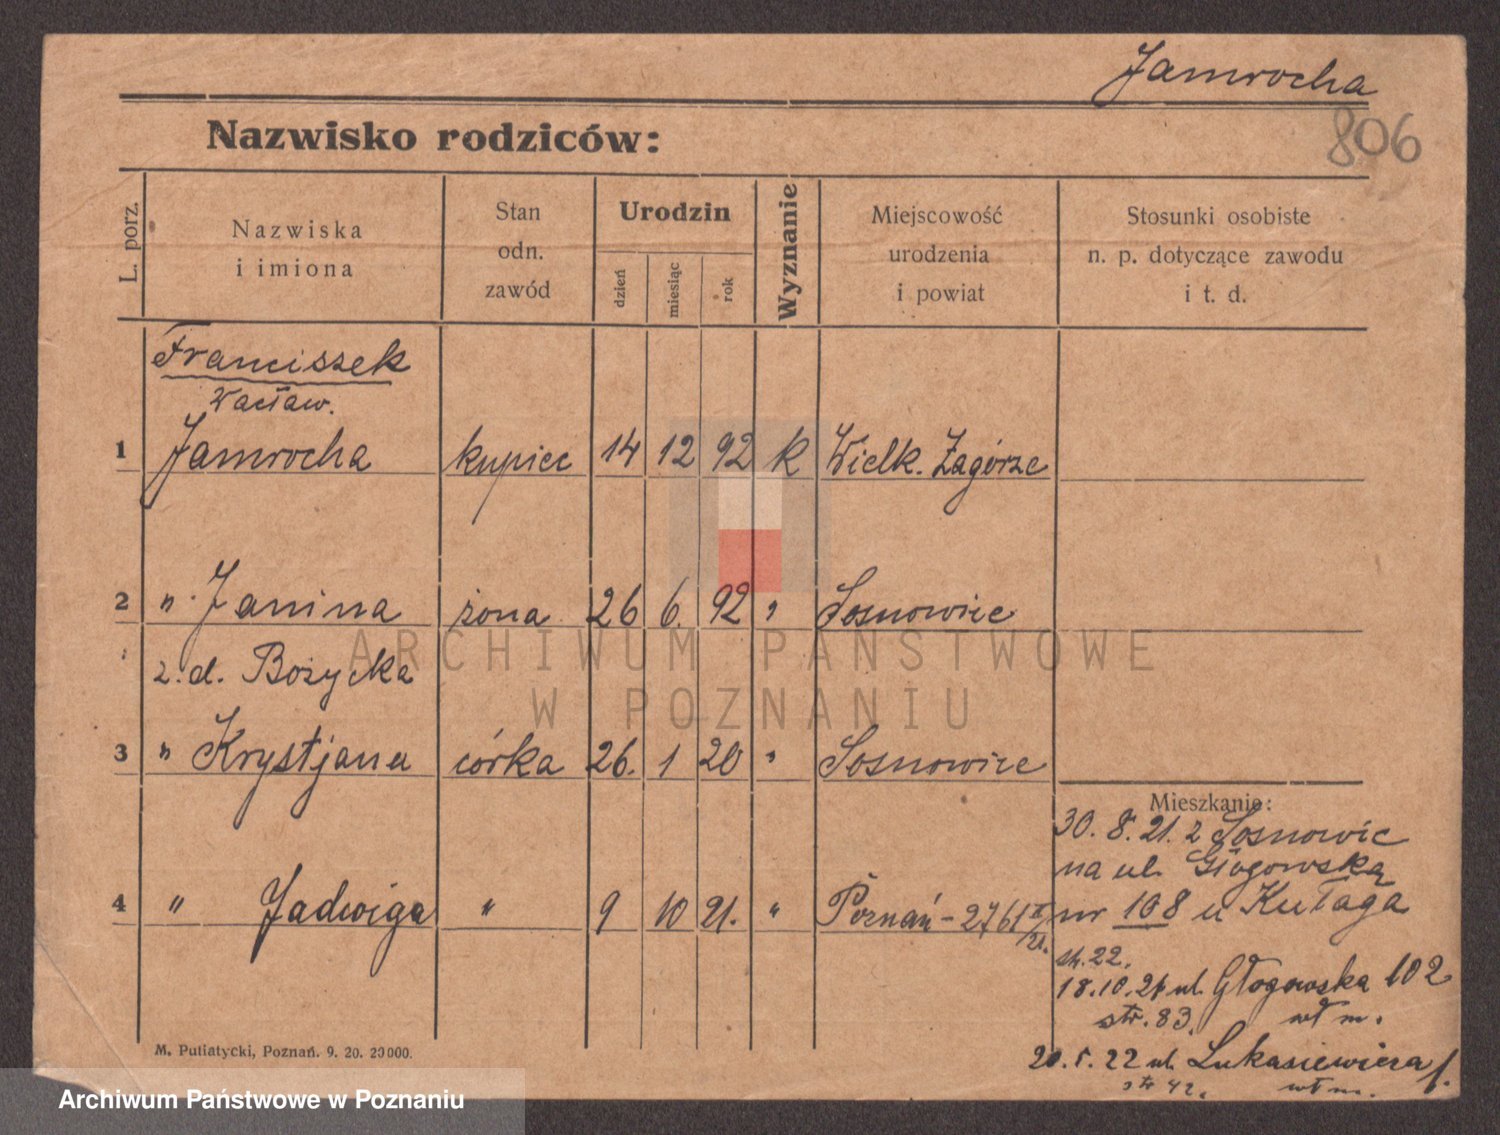 Jamrocha
806
Nazwisko rodziców:
L. porz.
Nazwiska
i imiona
Stan
odn.
zawód
Urodzin
dzień
miesiąc
rok
Wyznanie
Miejscowość
urodzenia
i powiat
Stosunki osobiste
n. p. dotyczące zawodu
i t. d.
Franciszek
Wacław.
1 Jamrocha kupiec 14 12 92 k Wielk. Zagórze
2 " Janina żona 26 6. 92 " Sosnowiec
z. d. Bożycka
3 " Krystjana córka 26. 1 20 " Sosnowiec
4 " Jadwiga " 9 10 21. " Poznań - 2761 II/21.
Mieszkanie:
30. 8. 21. z Sosnowic
na ul. Głogowską
nr 108 u Kułaga
str. 22.
18.10.21 ul. Głogowska 102
str. 83. wł m.
20. 5. 22 ul. Łukasiewicza 1.
str 42. wł m.
M. Putiatycki, Poznań. 9. 20. 20000.
ARCHIWUM PAŃSTWOWE
W POZNANIU
Archiwum Państwowe w Poznaniu